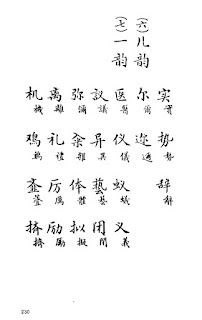 (六) 儿韵
(七) 一韵
机 离 弥 议 医 尔 实
機 離 彌 議 醫 爾 實
鸡 礼 异 仪 迩 势
鷄 禮 異 儀 邇 勢
厉 体 蚁 辞
厲 體 蟻 辭
挤 励 拟 义
擠 勵 擬 義
230